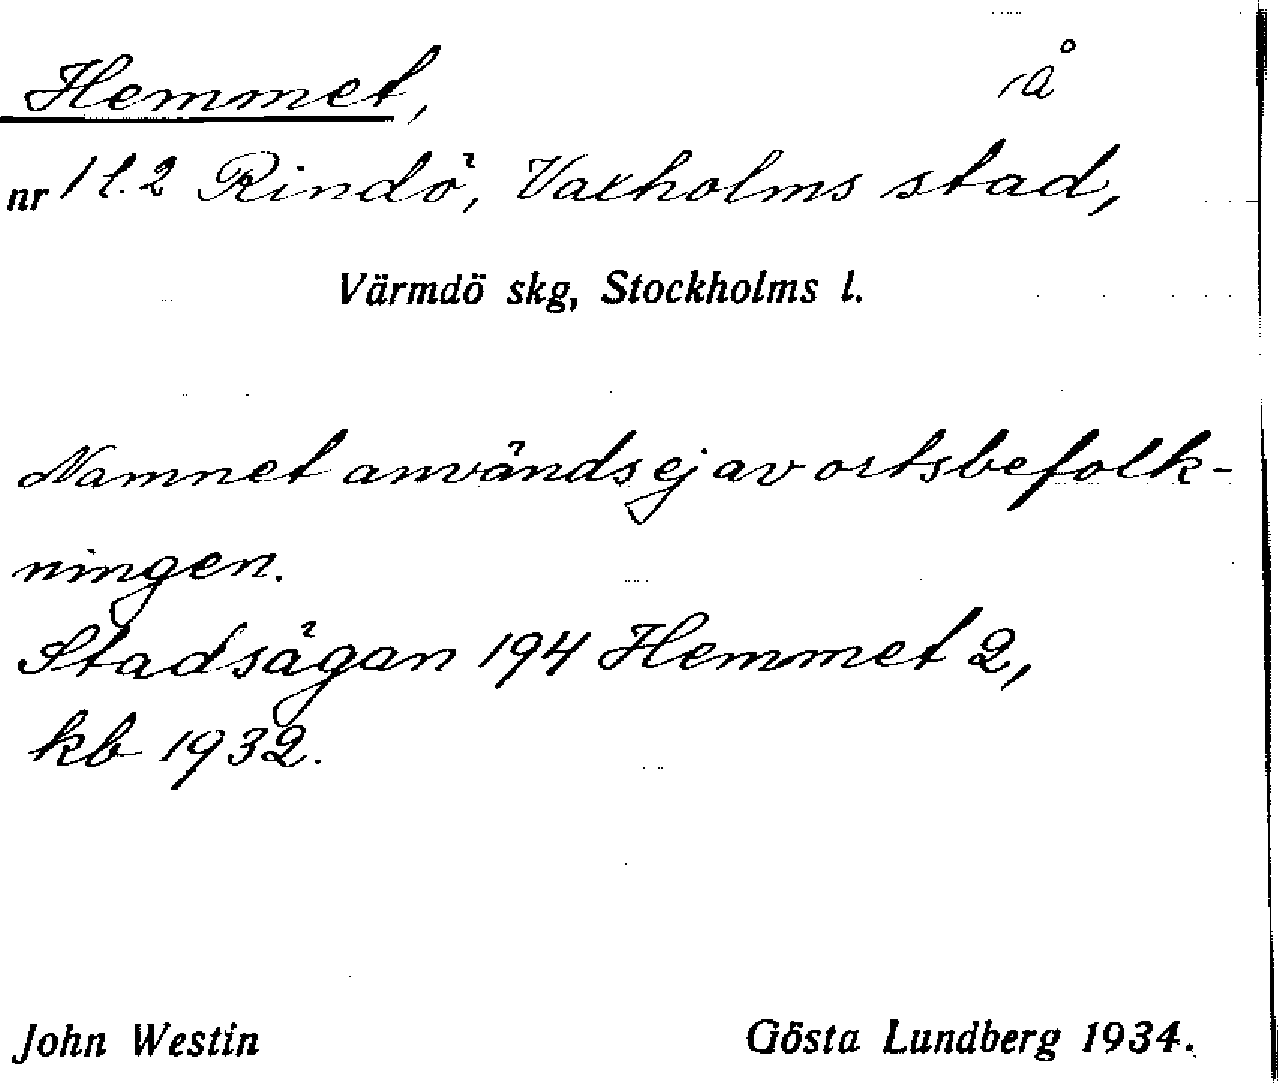 Hemmet, å
nr 1 l. 2 Rindö, Vaxholms stad,
Värmdö skg, Stockholms l.
Namnet användsej av ortsbefolk-
ningen.
Stadsägan 194 Hemmet 2,
kb 1932.
John Westin Gösta Lundberg 1934.